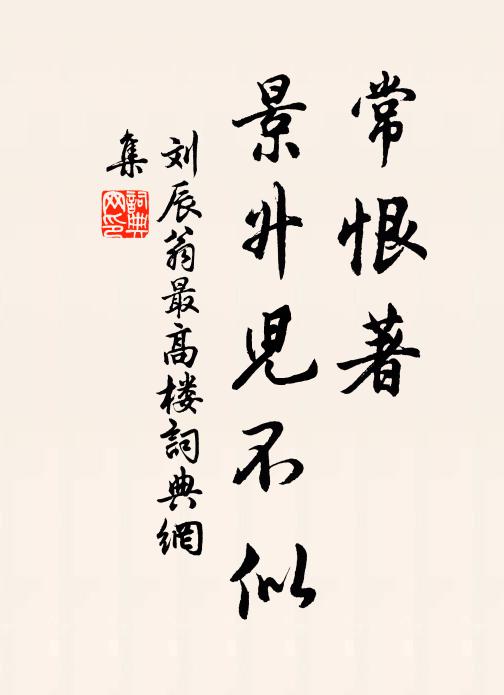 常恨著
景升児不似
刘辰翁最高楼詞典網
集
詞典
网印